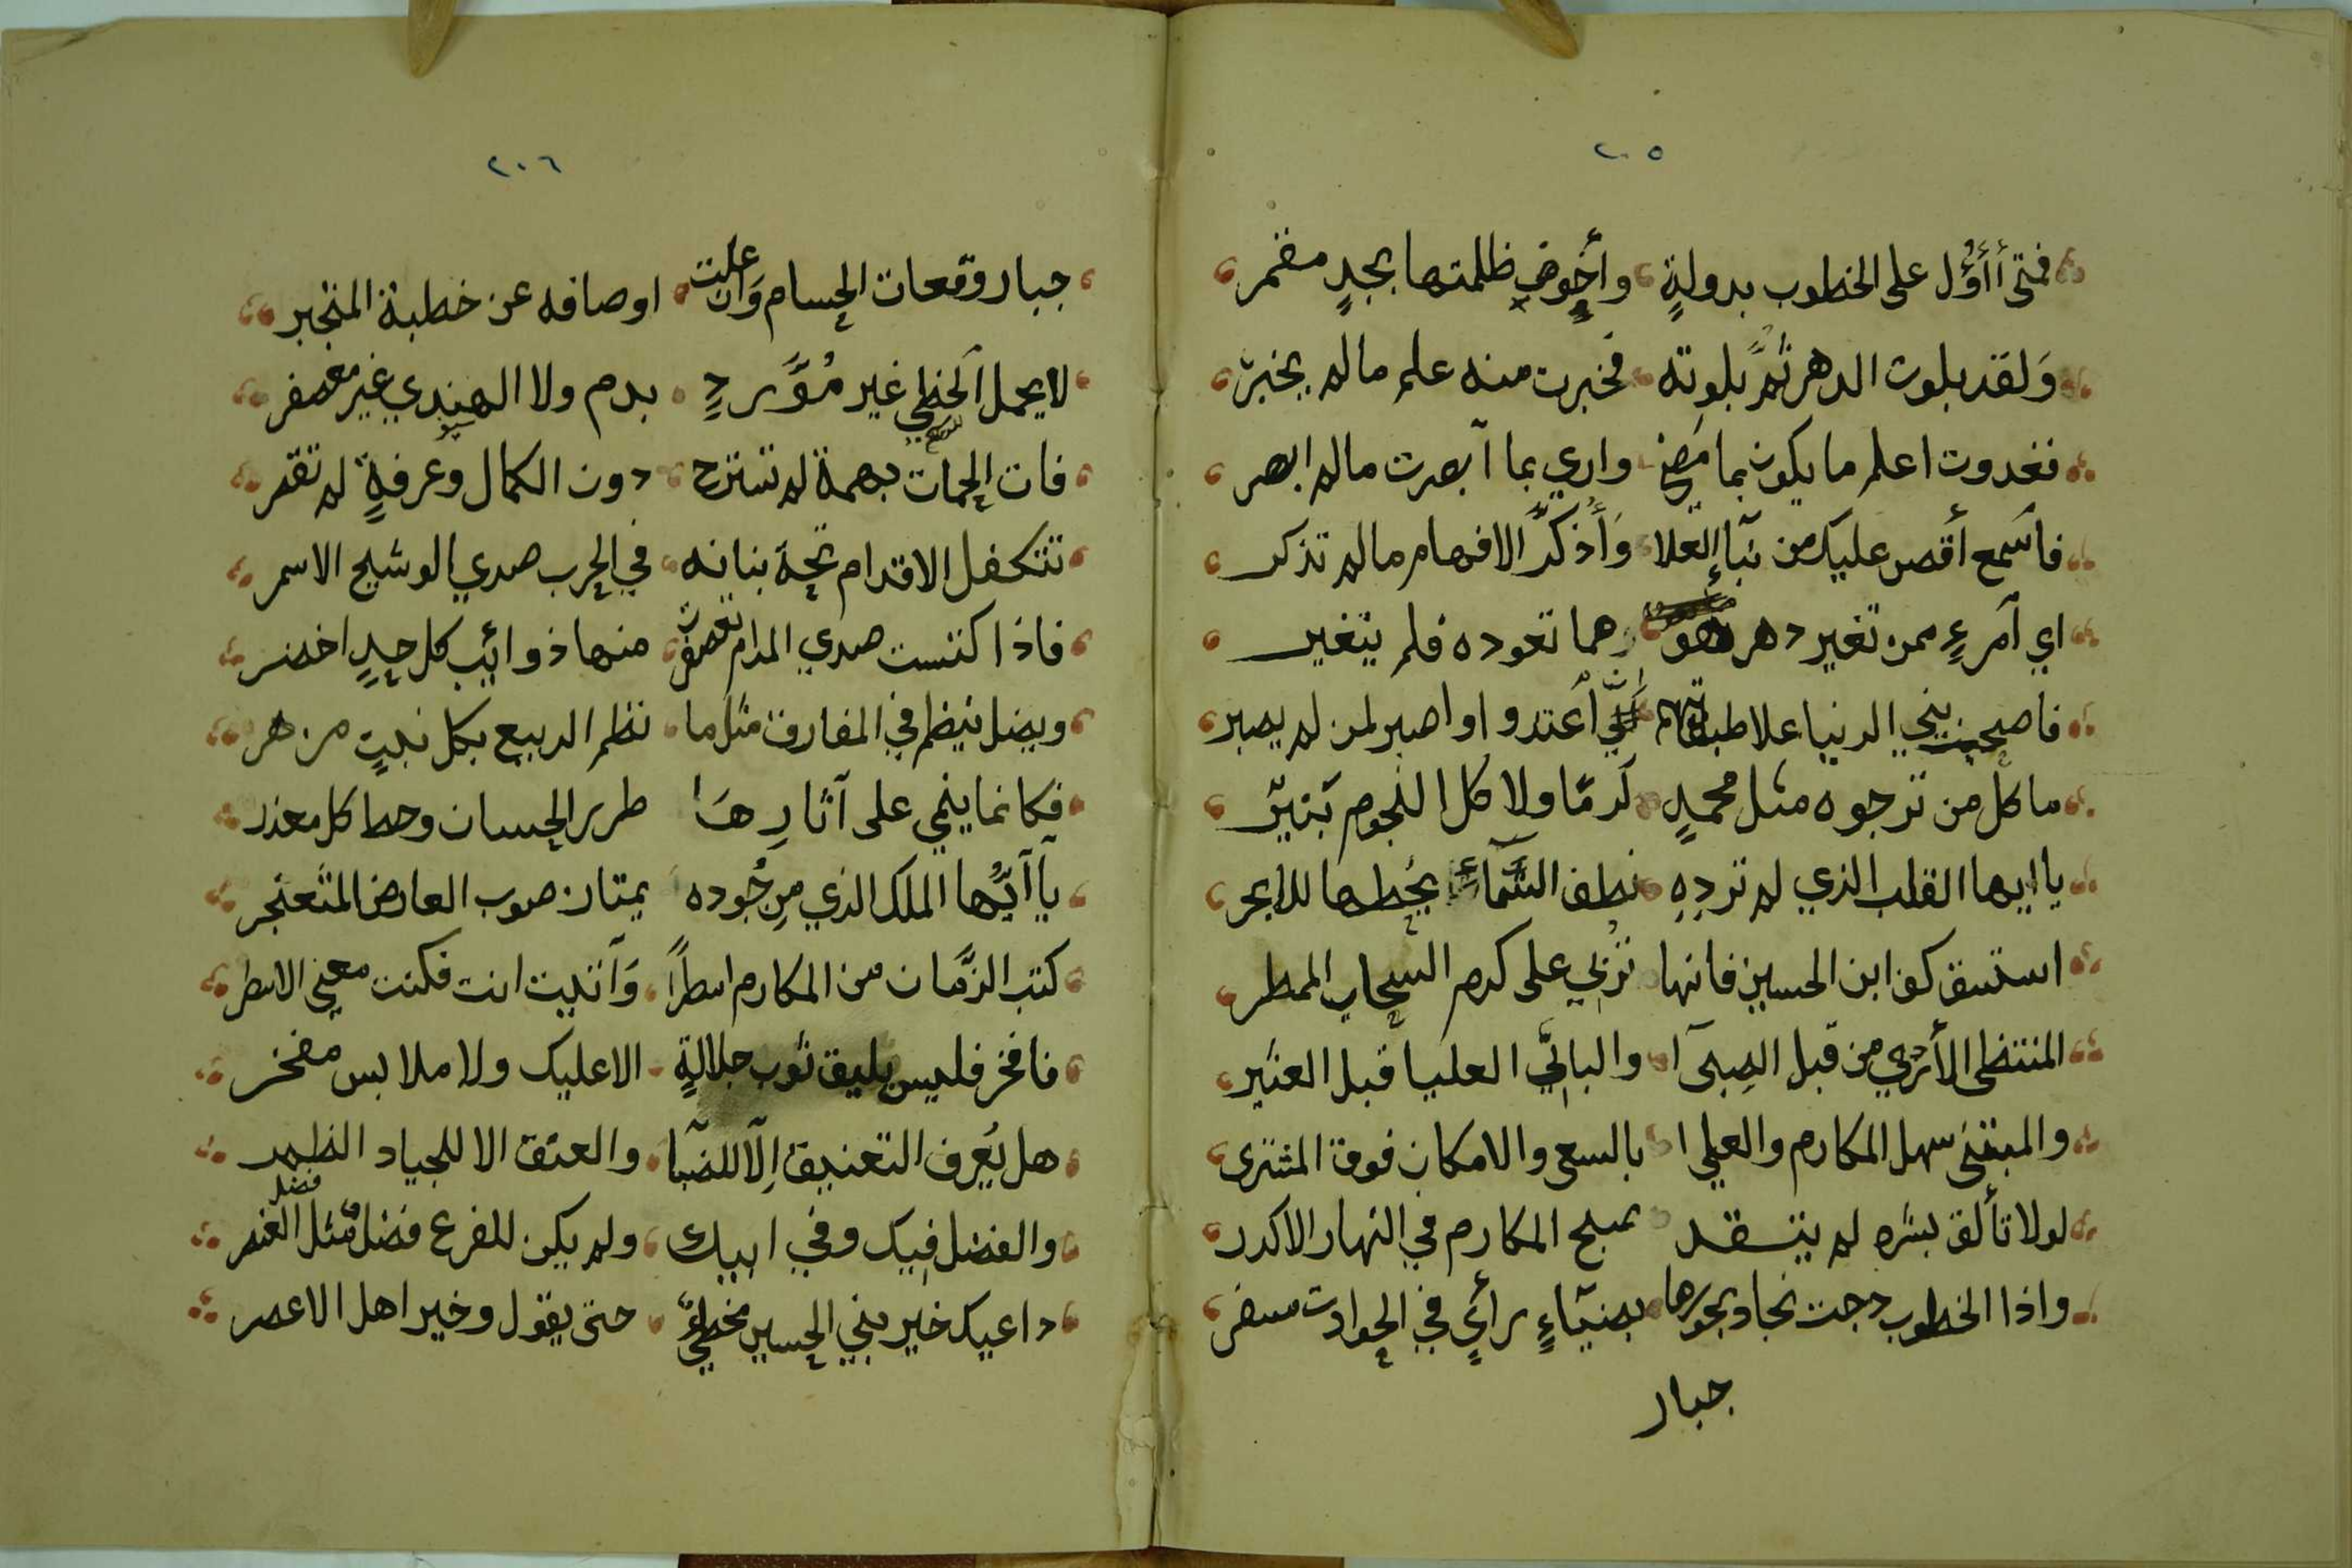 ٢٠٥
فمتى أأؤل على الخطوب بدولةٍ وأخوض ظلمتها بجدٍ مقمر
وَلقد بلوت الدهر ثمَّ بلوته فخبرت منه علم ما لم يخبر
فغدوت اعلم ما يكون بما مضى واري بما أبصرت ما لم ابصر
فاسمع أقص عليك من نبآء العلا وَأُذكرُ الافهام ما لم تذكر
اي آمرءٍ ممن تغير دهر هو رهما تعوده فلم يتغير
فاصحبن بني الدنيا علا طباقهم اعتدو او اصبر لمن لم يصبر
ما كل من ترجوه مثل محمدٍ كرمًا ولا كل النجوم بنيّر
يا ايها القلب الذي لم تردِهِ نطف السَّمآءِ يحُطها للابحر
استسق كف ابن الحسين فانها تربي على كرم السحاب الممطر
المنتظى الأردي من قبل الصِبىَ ا والباني العليا قبل العثير
والمبتنى سهل المكارم والعلي ا بالسعى والامكان فوق المشترى
لولا تألق بشره لم يتقد صبح المكارم في النهار الاكدر
واذا الخطوب دجت نجاد بجورها بضيآءٍ رأيٍ في الحوادث مسفر
جبار
٢٠٦
جبار وقعات الحسام وَان علت اوصافه عن خطبة المتجبر
لا يحمل الخطي غير مُوَّردٍ بدم ولا الهندي غير معصفر
فات الحمات بهمة لم تسترح دون الكمال وعرفةٍ لم تقتر
تتكفل الاقدام تحة بنانه في الحرب صدي الوشيج الاسمر
فاذا كتست صدي المدام تعصفرت منها ذوائب كل حدٍ اخضر
ويضل ينظم في المفارق مثل ما نظم الربيع بكل نبتٍ مزهر
فكانما ينمي على آثارِهَا طرر الحسان وحط كل معذر
يآ آيُّها الملك الذي مِن جُوده يمتار صوب العارض المثعنجر
كتب الزمَّان من المكارم اسطراً وَآتيت انت فكنت معنى الاسطر
فافخر فليس يليق ثوب جلالةٍ الا عليك ولا ملابس مفخر
هل يُعرف التعنيق اِلآ للضبآ والعتق الا للجياد الظمر
والفضل فيك وفي ابيك ولم يكن للفرع فضل مثل فضل العنصر
داعيك خير بني الحسين مخطئٍ حتى يقول وخير اهل الاعصر